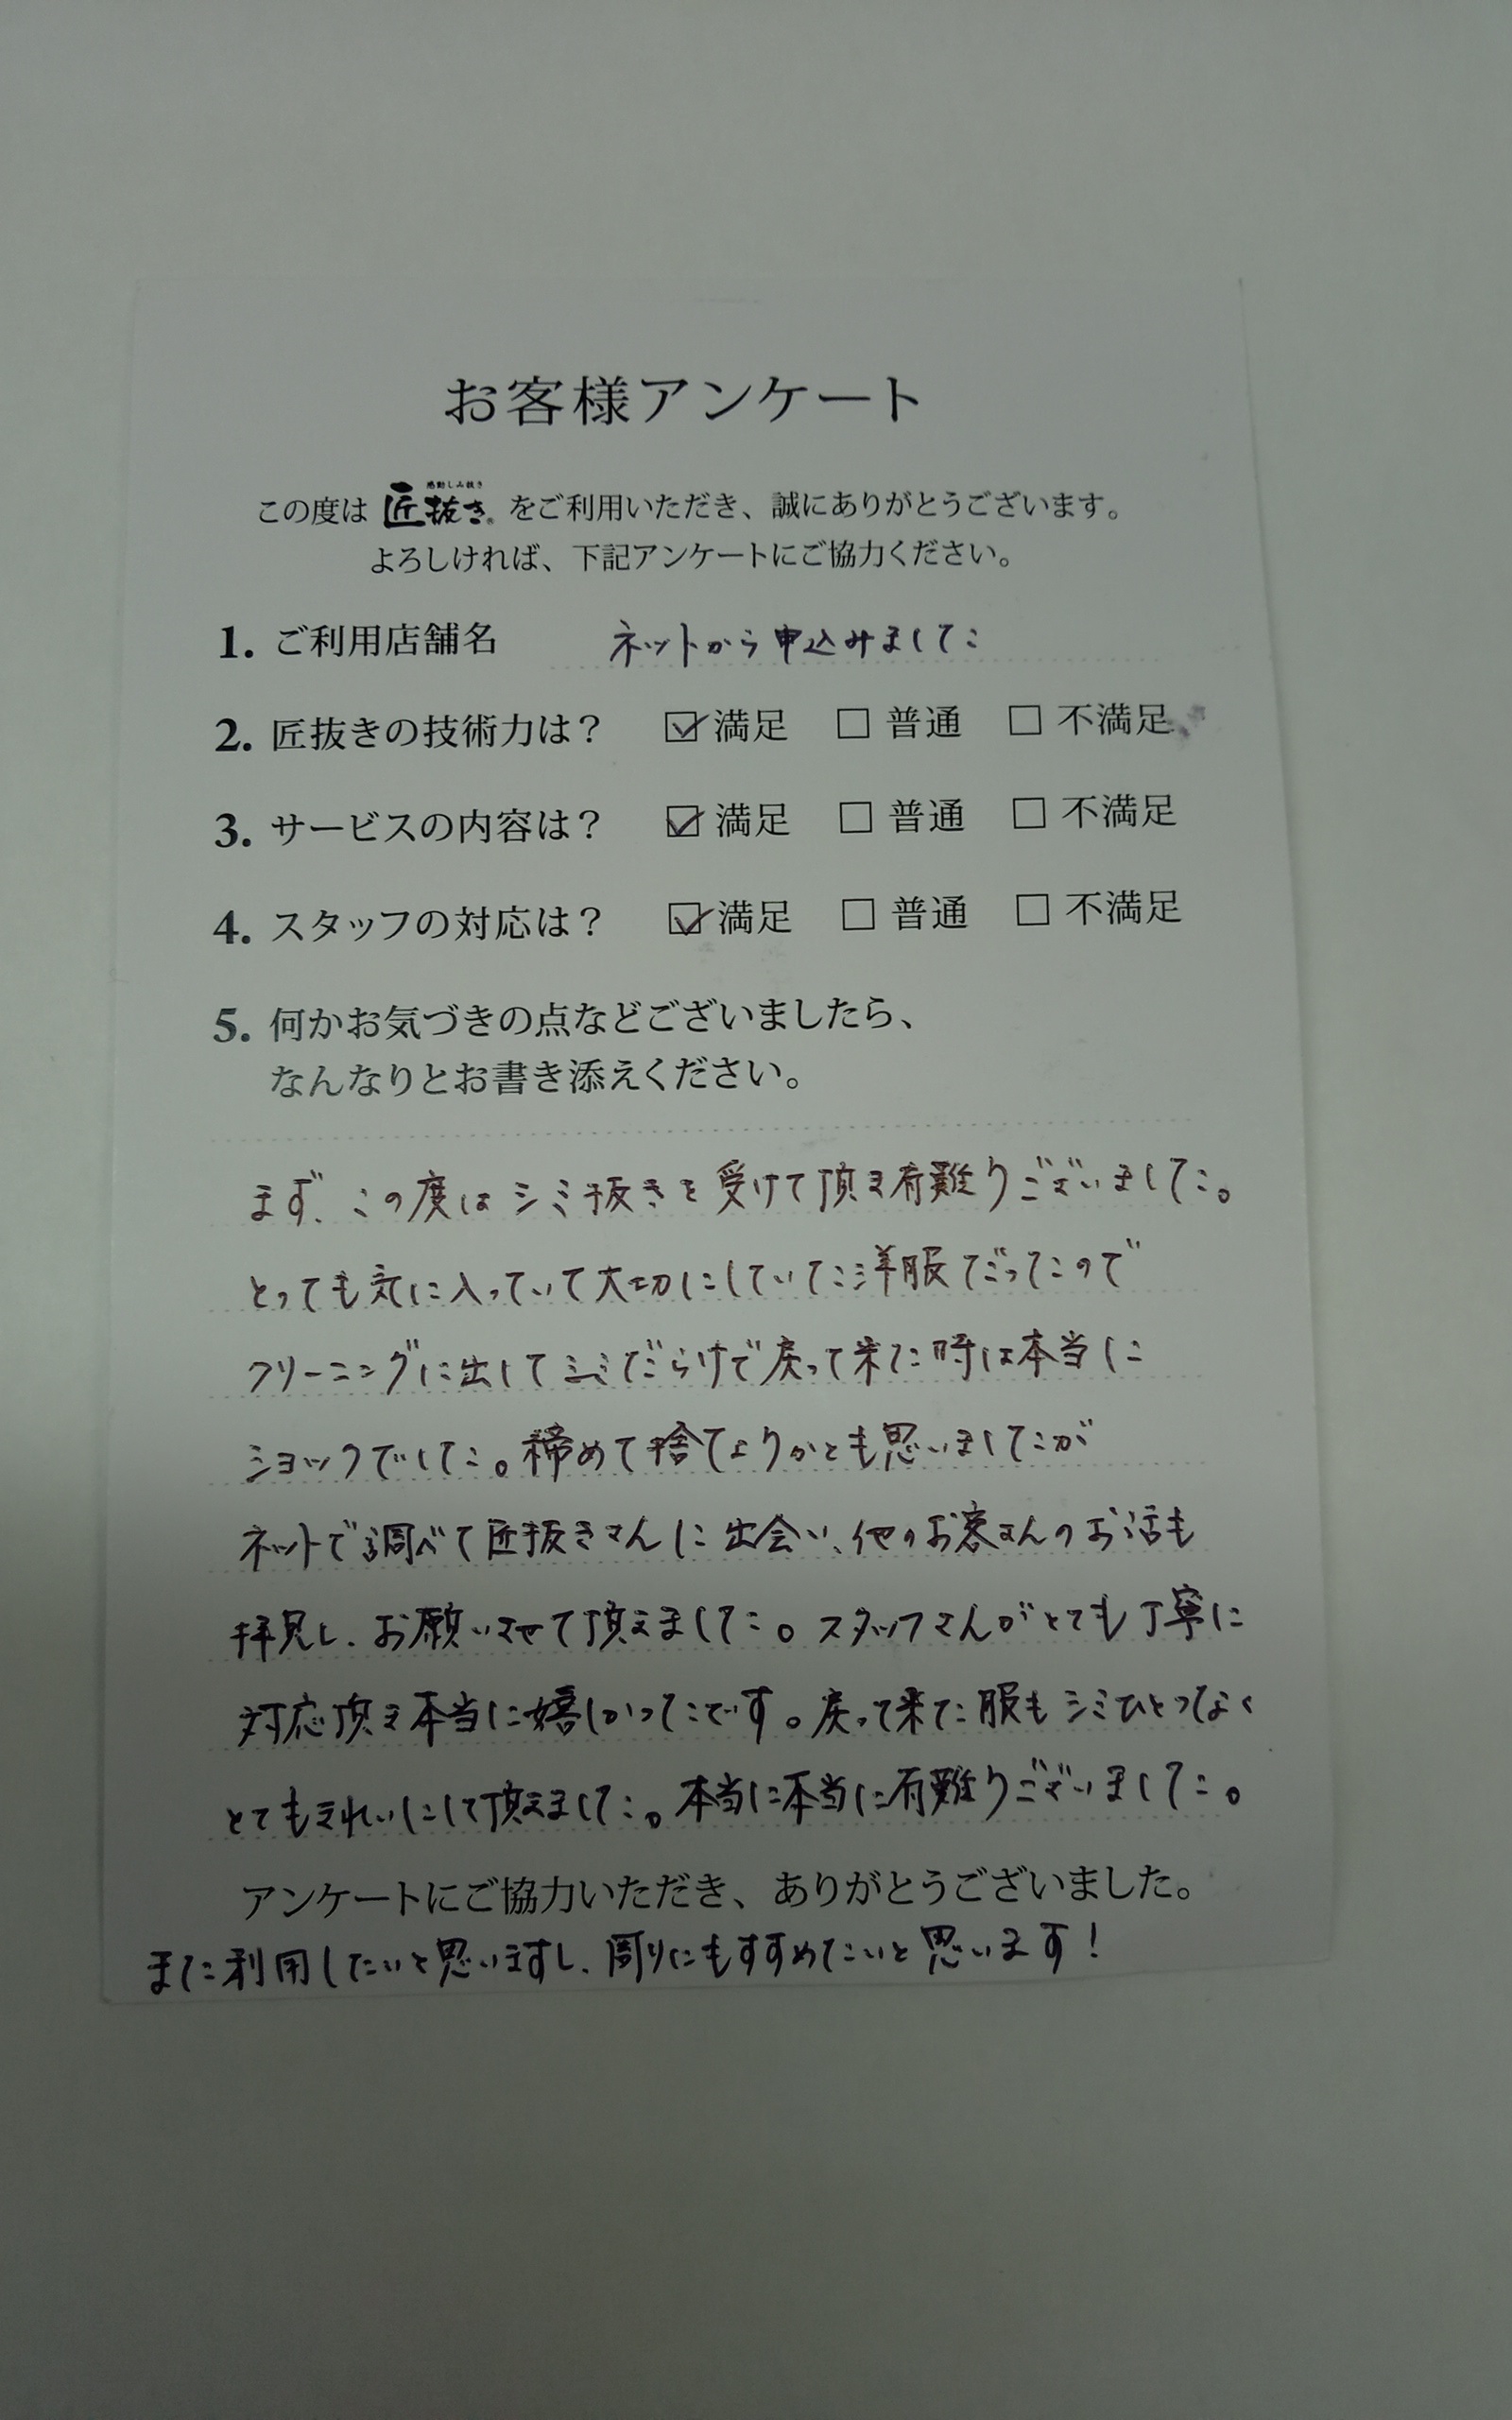 お客様アンケート
感動しみ抜き
この度は 匠抜き® をご利用いただき、誠にありがとうございます。
よろしければ、下記アンケートにご協力ください。
1. ご利用店舗名 ネットから申込みました
2. 匠抜きの技術力は? ☑ 満足 □ 普通 □ 不満足
3. サービスの内容は? ☑ 満足 □ 普通 □ 不満足
4. スタッフの対応は? ☑ 満足 □ 普通 □ 不満足
5. 何かお気づきの点などございましたら、
なんなりとお書き添えください。
まず、この度はシミ抜きを受けて頂き有難うございました。
とっても気に入っていて大切にしていた洋服だったので
クリーニングに出してシミだらけで戻って来た時は本当に
ショックでした。締めて捨てようかとも思いましたが
ネットで調べて匠抜きさんに出会い、他のお客さんのお話も
拝見し、お願いさせて頂きました。スタッフさんがとても丁寧に
対応頂き本当に嬉しかったです。戻って来た服もシミひとつなく
とてもきれいにして頂きました。本当に本当に有難うございました。
アンケートにご協力いただき、ありがとうございました。
また利用したいと思いますし、周りにもすすめたいと思います!